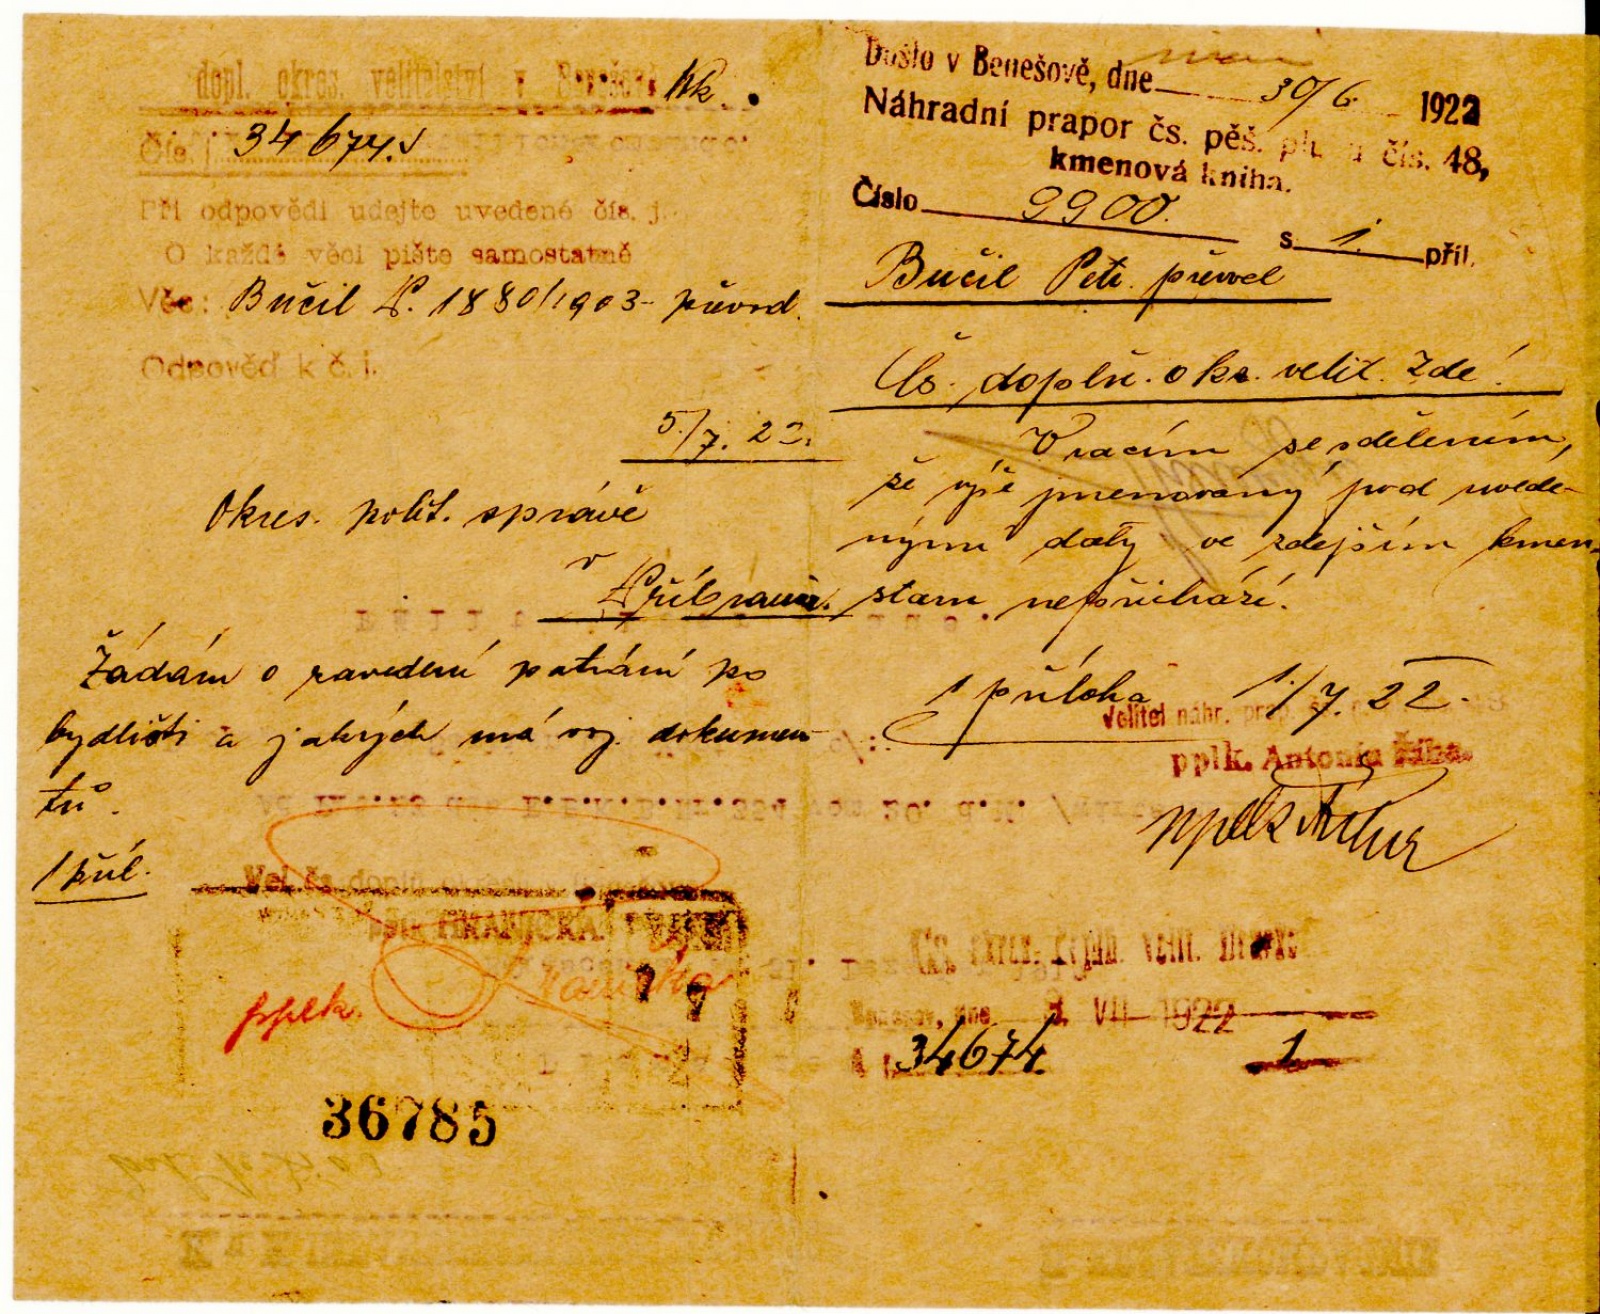 dopl. okres. velitelství v Benešově
Čís. j. 34674.
Při odpovědi udejte uvedené čís. j.
O každé věci pište samostatně
Věc: Bučil P. 1880/1903 - původ.
Odpověď k č. j.
5/7. 22.
Okres. polit. správě
v
Příbrami.
Žádám o zavedení pátrání po
bydlišti a jakých má voj. dokumen-
tů.
1 příl.
Vel. čs. doplň. okres.
pplk. HRANIČKA.
pplk. Hranička
36785
Došlo v Benešově, dne 30/6. 1922
Náhradní prapor čs. pěš. pluku čís. 48,
kmenová kniha.
Číslo 9900. s 1. příl.
Bučil Petr
Čs. doplň. okr. velit. zde!
Vracím se sdělením,
že výše jmenovaný pod uvede-
nými daty ve zdejším kmen.
stavu nepřichází.
1 příloha 1./7. 22.
Velitel náhr. prap.
pplk. Antonín Říha.
Čs. velit.
Benešov, dne 3. VII. 1922
34674. 1